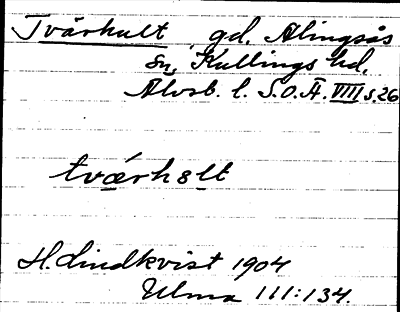 Tvärhult gd. Alingsås
sn, Kullings hd.
Älvsb. l. S.O.Ä. VIII s. 26
tvárhɜlt
H. Lindkvist 1904
Ulma 111:134